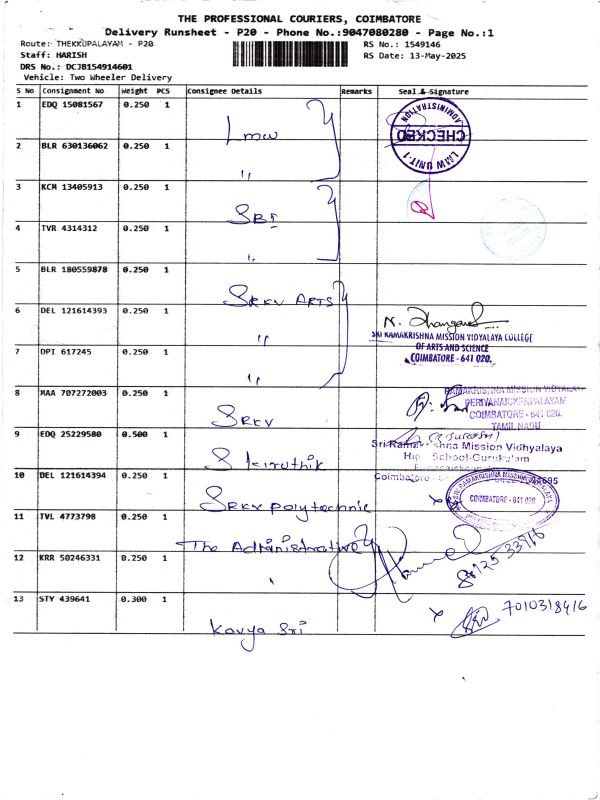 THE PROFESSIONAL COURIERS, COIMBATORE
Delivery Runsheet - P20 - Phone No.:9047080280 - Page No.:1
Route: THEKKUPALAYAM - P20
RS No.: 1549146
Staff: HARISH
RS Date: 13-May-2025
DRS No.: DCJB154914601
Vehicle: Two Wheeler Delivery
S No Consignment No Weight PCS Consignee Details Remarks Seal & Signature
1 EDQ 15081567 0.250 1
Lmw
ADMINISTRATION
CHECKED
LMW UNIT-1
2 BLR 630136062 0.250 1
"
3 KCM 13405913 0.250 1
SBI
4 TVR 4314312 0.250 1
"
5 BLR 180559878 0.250 1
SRKV ARTS
6 DEL 121614393 0.250 1
"
SRI RAMAKRISHNA MISSION VIDYALAYA COLLEGE
OF ARTS AND SCIENCE
COIMBATORE - 641 020.
7 DPI 617245 0.250 1
"
8 MAA 707272003 0.250 1
SRKV
RAMAKRISHNA MISSION VIDYALAYA
PERIYANAICKENPALAYAM
COIMBATORE - 641 020.
TAMIL NADU
9 EDQ 25229580 0.500 1
S kiruthik
Mission Vidhyalaya
School-Gurukulam
10 DEL 121614394 0.250 1
SRKV Polytechnic
Coimbatore
COIMBATORE - 641 020
11 TVL 4773798 0.250 1
The Administrative
12 KRR 50246331 0.250 1
"
13 STY 439641 0.300 1
Kavya Sri
7010318416